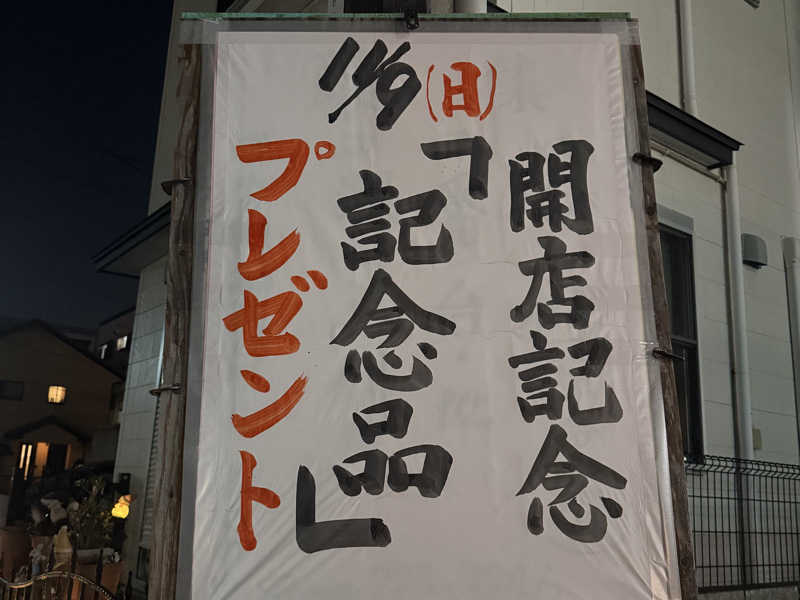 11/9(日)
開店記念
「記念品」
プレゼント